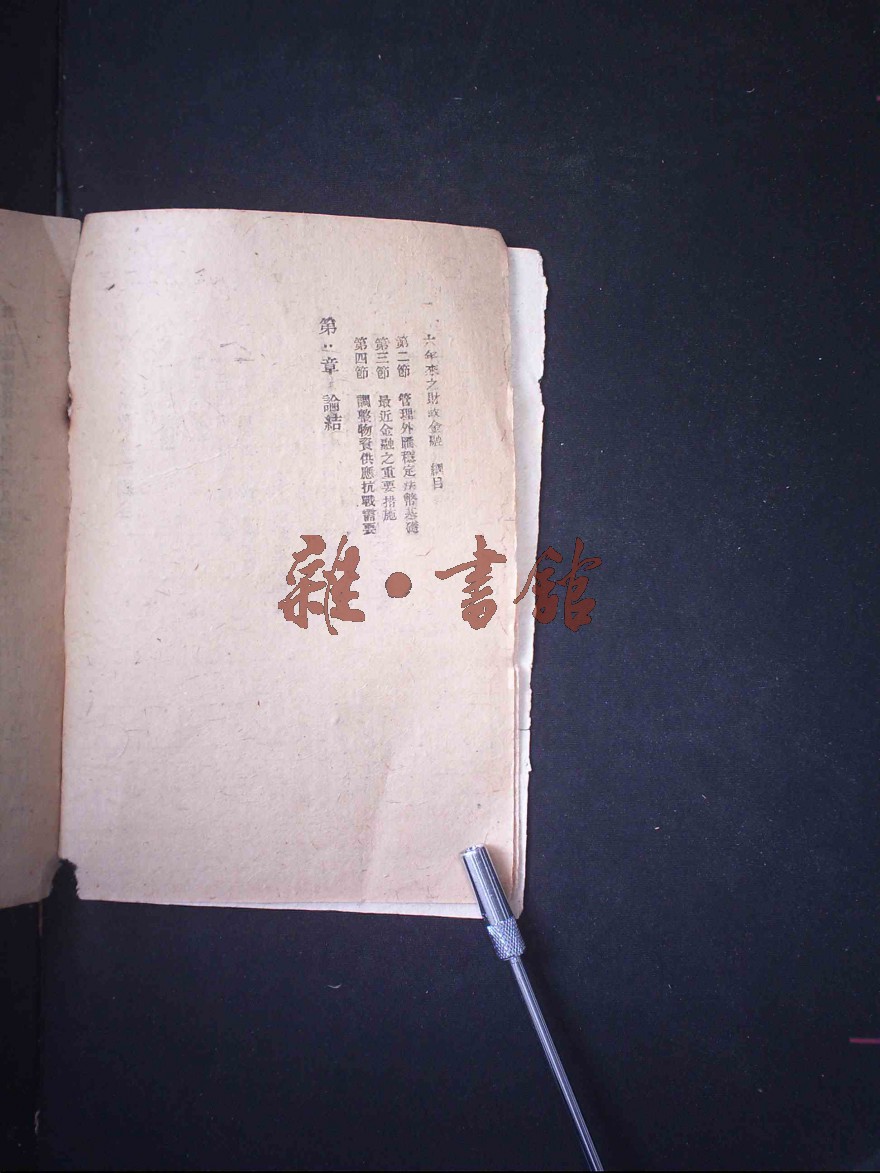 六年來之財政金融 綱目
第二節 管理外匯穩定法幣基礎
第三節 最近金融之重要措施
第四節 調整物資供應抗戰需要
第 章 論結
雜·書館